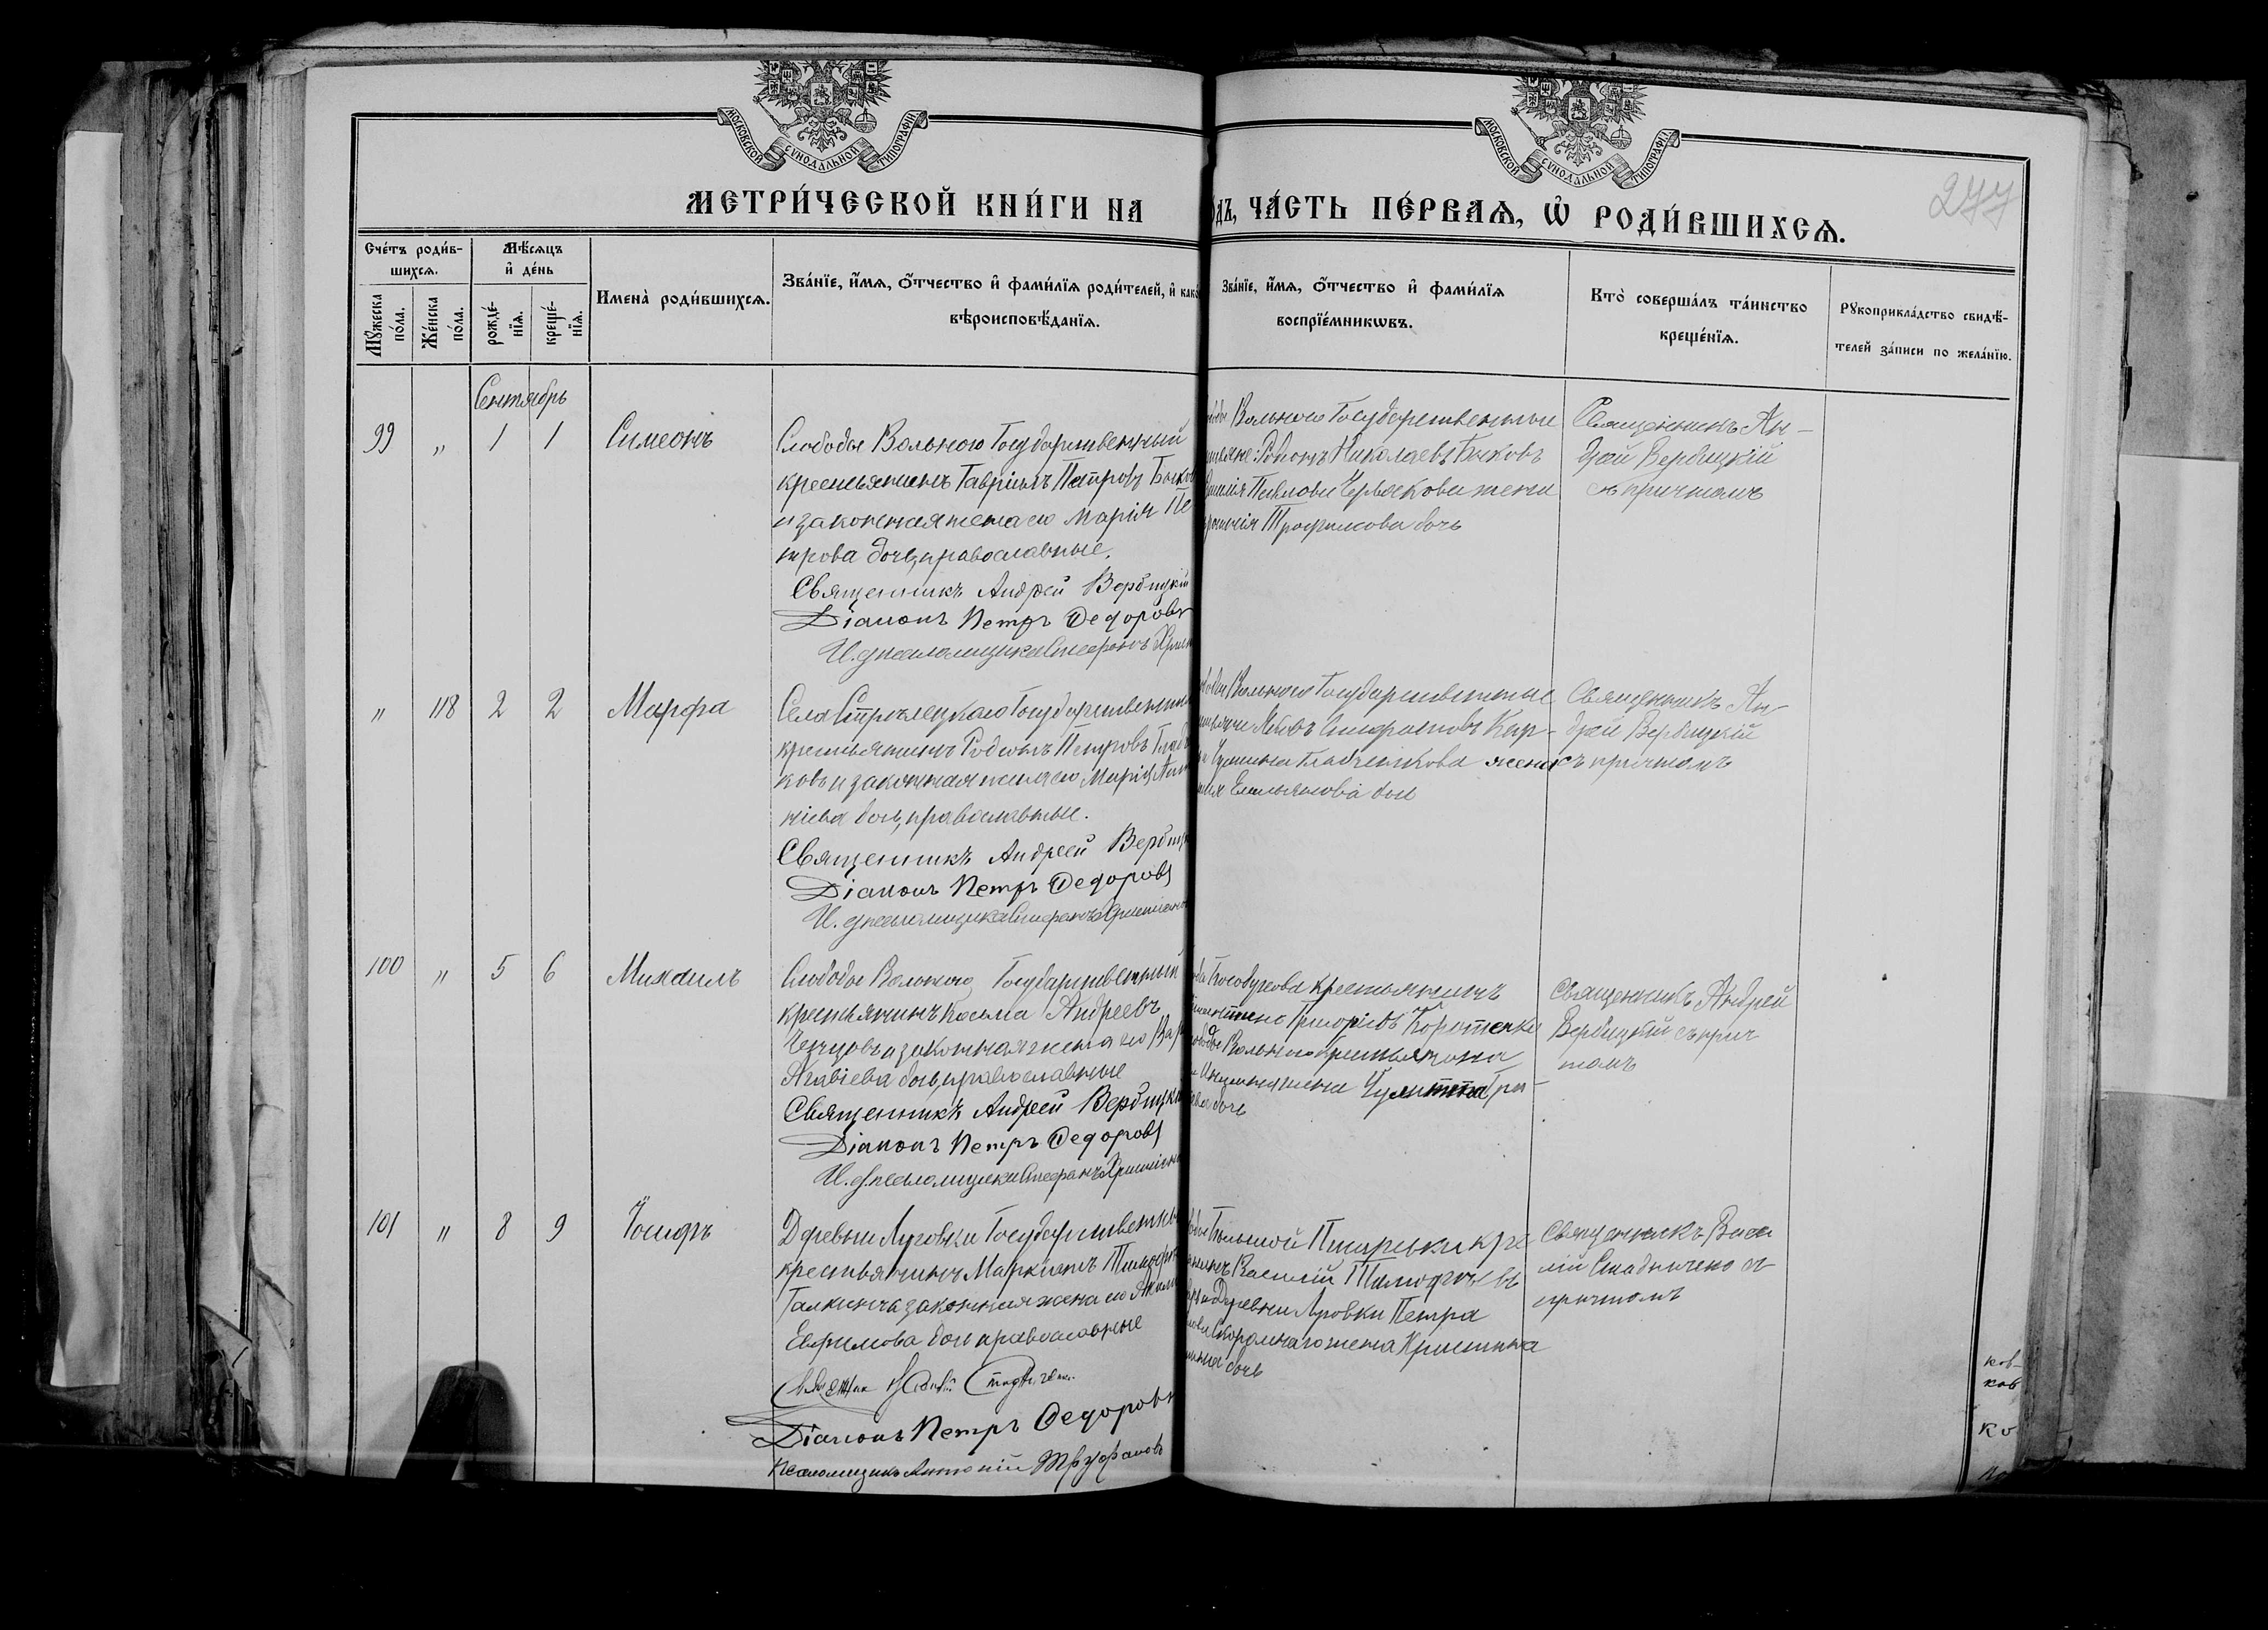 МОСКОВСКОЙ СѴНОДАЛЬНОЙ ТИПОГРАФІИ
МОСКОВСКОЙ СѴНОДАЛЬНОЙ ТИПОГРАФІИ
277
МЕТРИ́ЧЕСКОЙ КНИ́ГИ НА
ОДЪ, ЧА́СТЬ ПЕ́РВАѦ, Ѡ҆ РОДИ́ВШИХСѦ.
Сче́тъ роди́в-
шихсѧ.
Мꙋ́жеска по́ла.
Же́нска по́ла.
Мѣ́сѧцъ
и҆ де́нь
рожде́-нїѧ.
креще́-нїѧ.
Имена̀ роди́вшихсѧ.
Зва́нїе, и҆́мѧ, ѻ҆́тчество и҆ фами́лїѧ роди́телей, и҆ како
вѣроисповѣ́данїѧ.
Зва́нїе, и҆́мѧ, ѻ҆́тчество и҆ фами́лїѧ
воспрїе́мникѡвъ.
Кто̀ соверша́лъ та́инство
креще́нїѧ.
Рꙋкоприкла́дство свидѣ́-
телей за́писи по жела́нїю.
Сентябрь
99 " 1 1 Симеонъ
Слободы Вольного Государственный
крестьянинъ Гавріилъ Петровъ Быков
и законная жена его Марія Пе
трова дочь, православные.
Священникъ Андрей Вербицкій
Діаконъ Петръ Федоровъ
И. д. псаломщика Стефанъ
Вольного Государственные
Николаевъ Быковъ
Павлова Червякова жена
Трофимова дочь
Священникъ Ан-
дрей Вербицкій
съ причтомъ
" 118 2 2 Марфа
Села Стрѣлецкаго Государственный
крестьянинъ Родіонъ Петровъ
ковъ и законная жена его Марія
дочь, православные.
Священникъ Андрей Вербиц
Діаконъ Петръ Федоровъ
И. д. псаломщика Стефанъ
Вольного Государственные
Яковъ Стефановъ Кар-
жена
Емельянова дочь
Священникъ Ан-
дрей Вербицкій
съ причтомъ
100 " 5 6 Михаилъ
Слободы Вольного Государственный
крестьянинъ Косьма Андреевъ
и законная жена его
дочь, православные
Священникъ Андрей Вербицкі
Діаконъ Петръ Федоровъ
И. д. псаломщика Стефанъ
крестьянинъ
Григоріевъ
Вольного крестьянина
жена Гри-
дочь
Священникъ Андрей
Вербицкій съ прич
томъ
101 " 8 9 Іосифъ
Деревни Луговки Государственны
крестьянинъ Маркіанъ Тимофе
Галкинъ и законная жена его
Евфимова дочь православные
Діаконъ Петръ Федоровъ
Псаломщикъ Антоній Труфановъ
Большой Писаревки кре
Василій Тимофѣевъ
деревни Луговки Петра
жена Христина
дочь
Священникъ Васи
лій съ
причтомъ
ков-
ков
ко